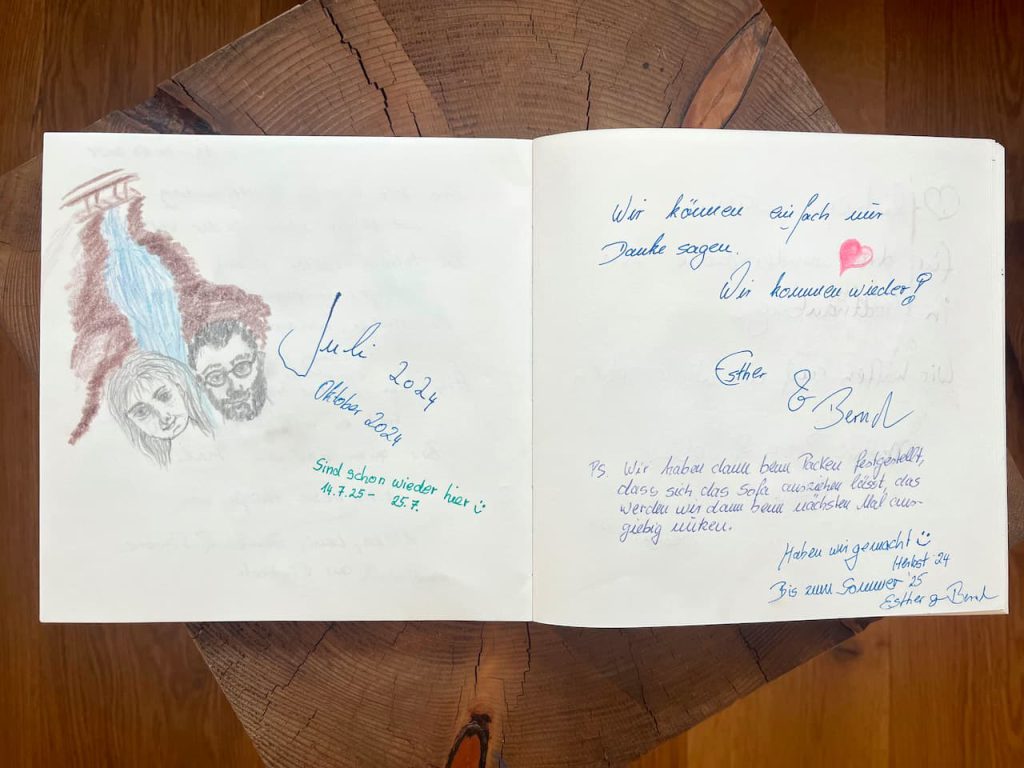 Juli 2024
Oktober 2024
Sind schon wieder hier
14.7.25 - 25.7.
Wir können einfach nur
Danke sagen.
Wir kommen wieder!
Esther
&
Bernd
PS. Wir haben dann beim Packen festgestellt,
dass sich das Sofa ausziehen lässt, das
werden wir dann beim nächsten Mal aus-
giebig nützen.
Haben wir gemacht
Herbst '24
Bis zum Sommer '25
Esther & Bernd